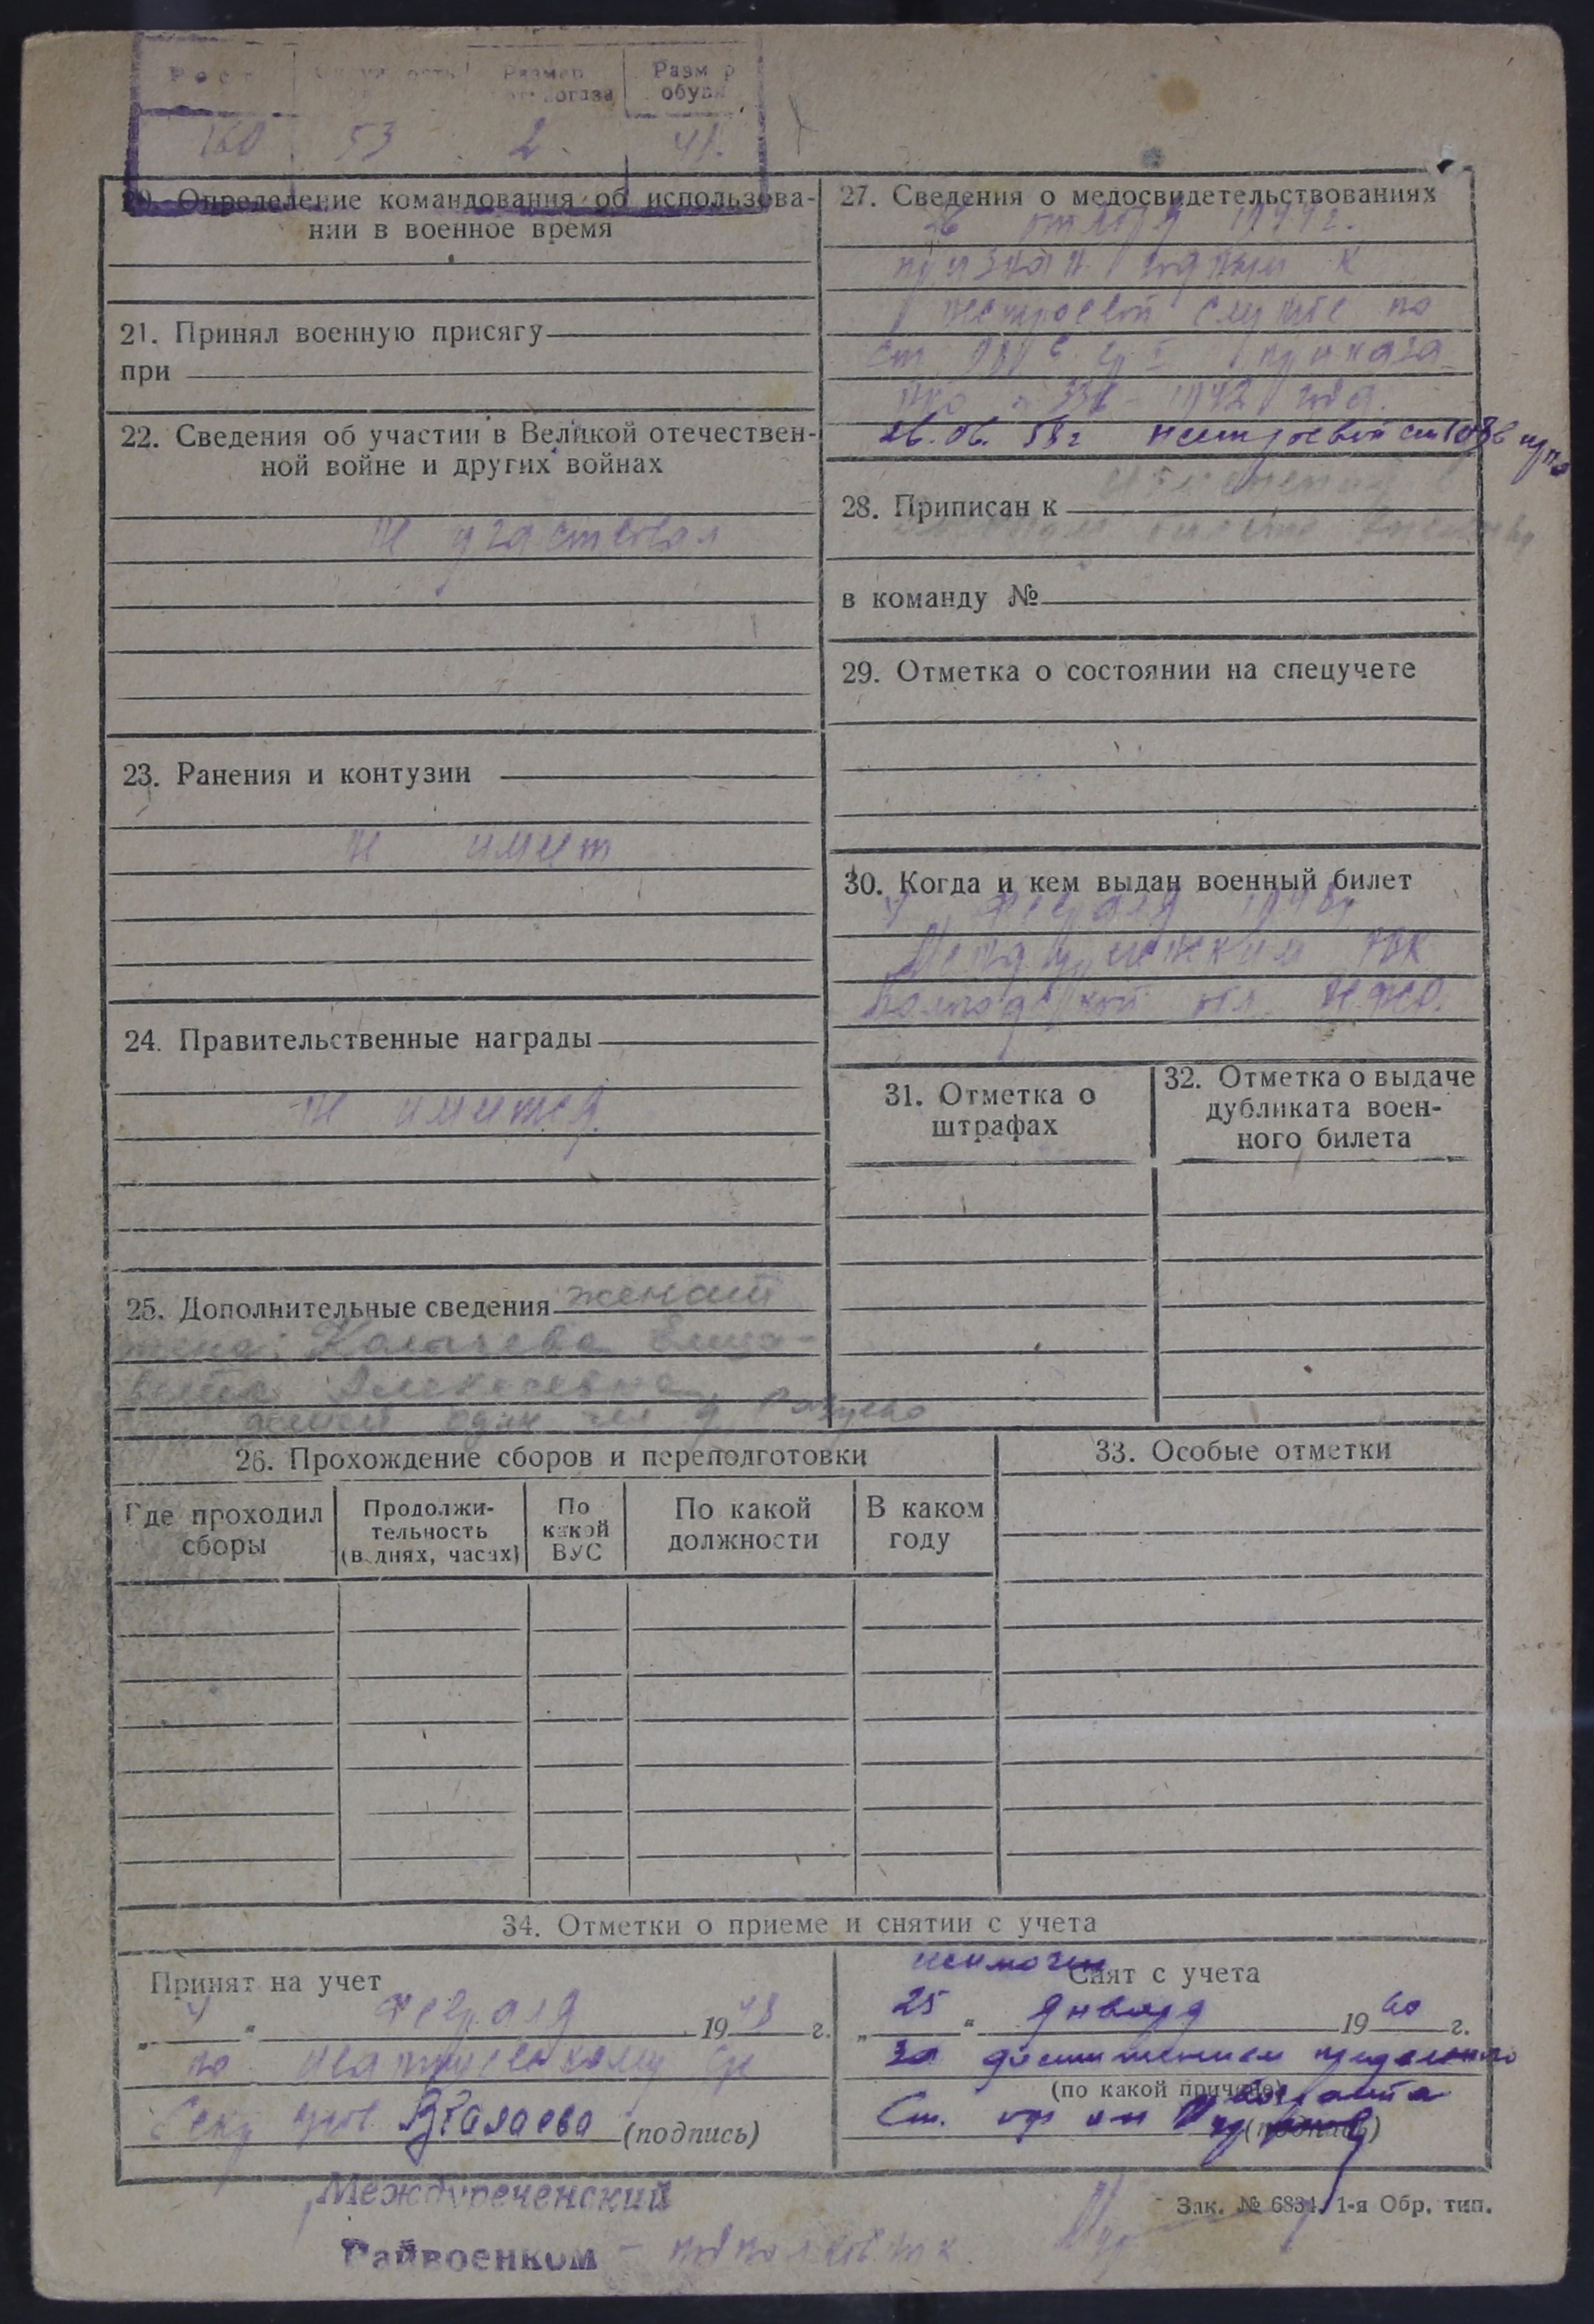 Рост
Размер
Размер
обуви
160 53 2. 41.
20. Определение командования об использова-
нии в военное время
21. Принял военную присягу
при
22. Сведения об участии в Великой отечествен-
ной войне и других войнах
не участвовал
23. Ранения и контузии
не имеет
24. Правительственные награды
не имеется.
25. Дополнительные сведения женат
жена: Елиза-
вета Алексеевна
один
27. Сведения о медосвидетельствованиях
26 1944 г.
признан годным к
нестроевой службе по
ст. приказа
НКО 336 - 1942 года.
26.06. 58 г нестроевой
28. Приписан к
в команду №
29. Отметка о состоянии на спецучете
30. Когда и кем выдан военный билет
4 февраля 1948 г
Междуреченским РВК
Вологодской обл.
31. Отметка о
штрафах
32. Отметка о выдаче
дубликата воен-
ного билета
26. Прохождение сборов и переподготовки
Где проходил
сборы
Продолжи-
тельность
(в днях, часах)
По
какой
ВУС
По какой
должности
В каком
году
33. Особые отметки
34. Отметки о приеме и снятии с учета
Принят на учет
„ 4 “ февраля 1948 г.
по
(подпись)
исключен
Снят с учета
„ 25 “ января 1960 г.
за достижением предельного
(по какой причине)
возраста
Ст.
(подпись)
Междуреченский
Райвоенком – подполковник
Зак. № 6834. 1-я Обр. тип.